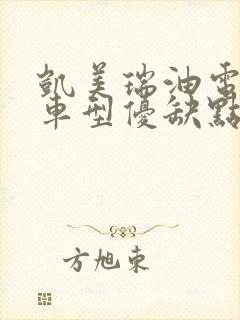 凱美瑞油電
車型優缺點
方旭東